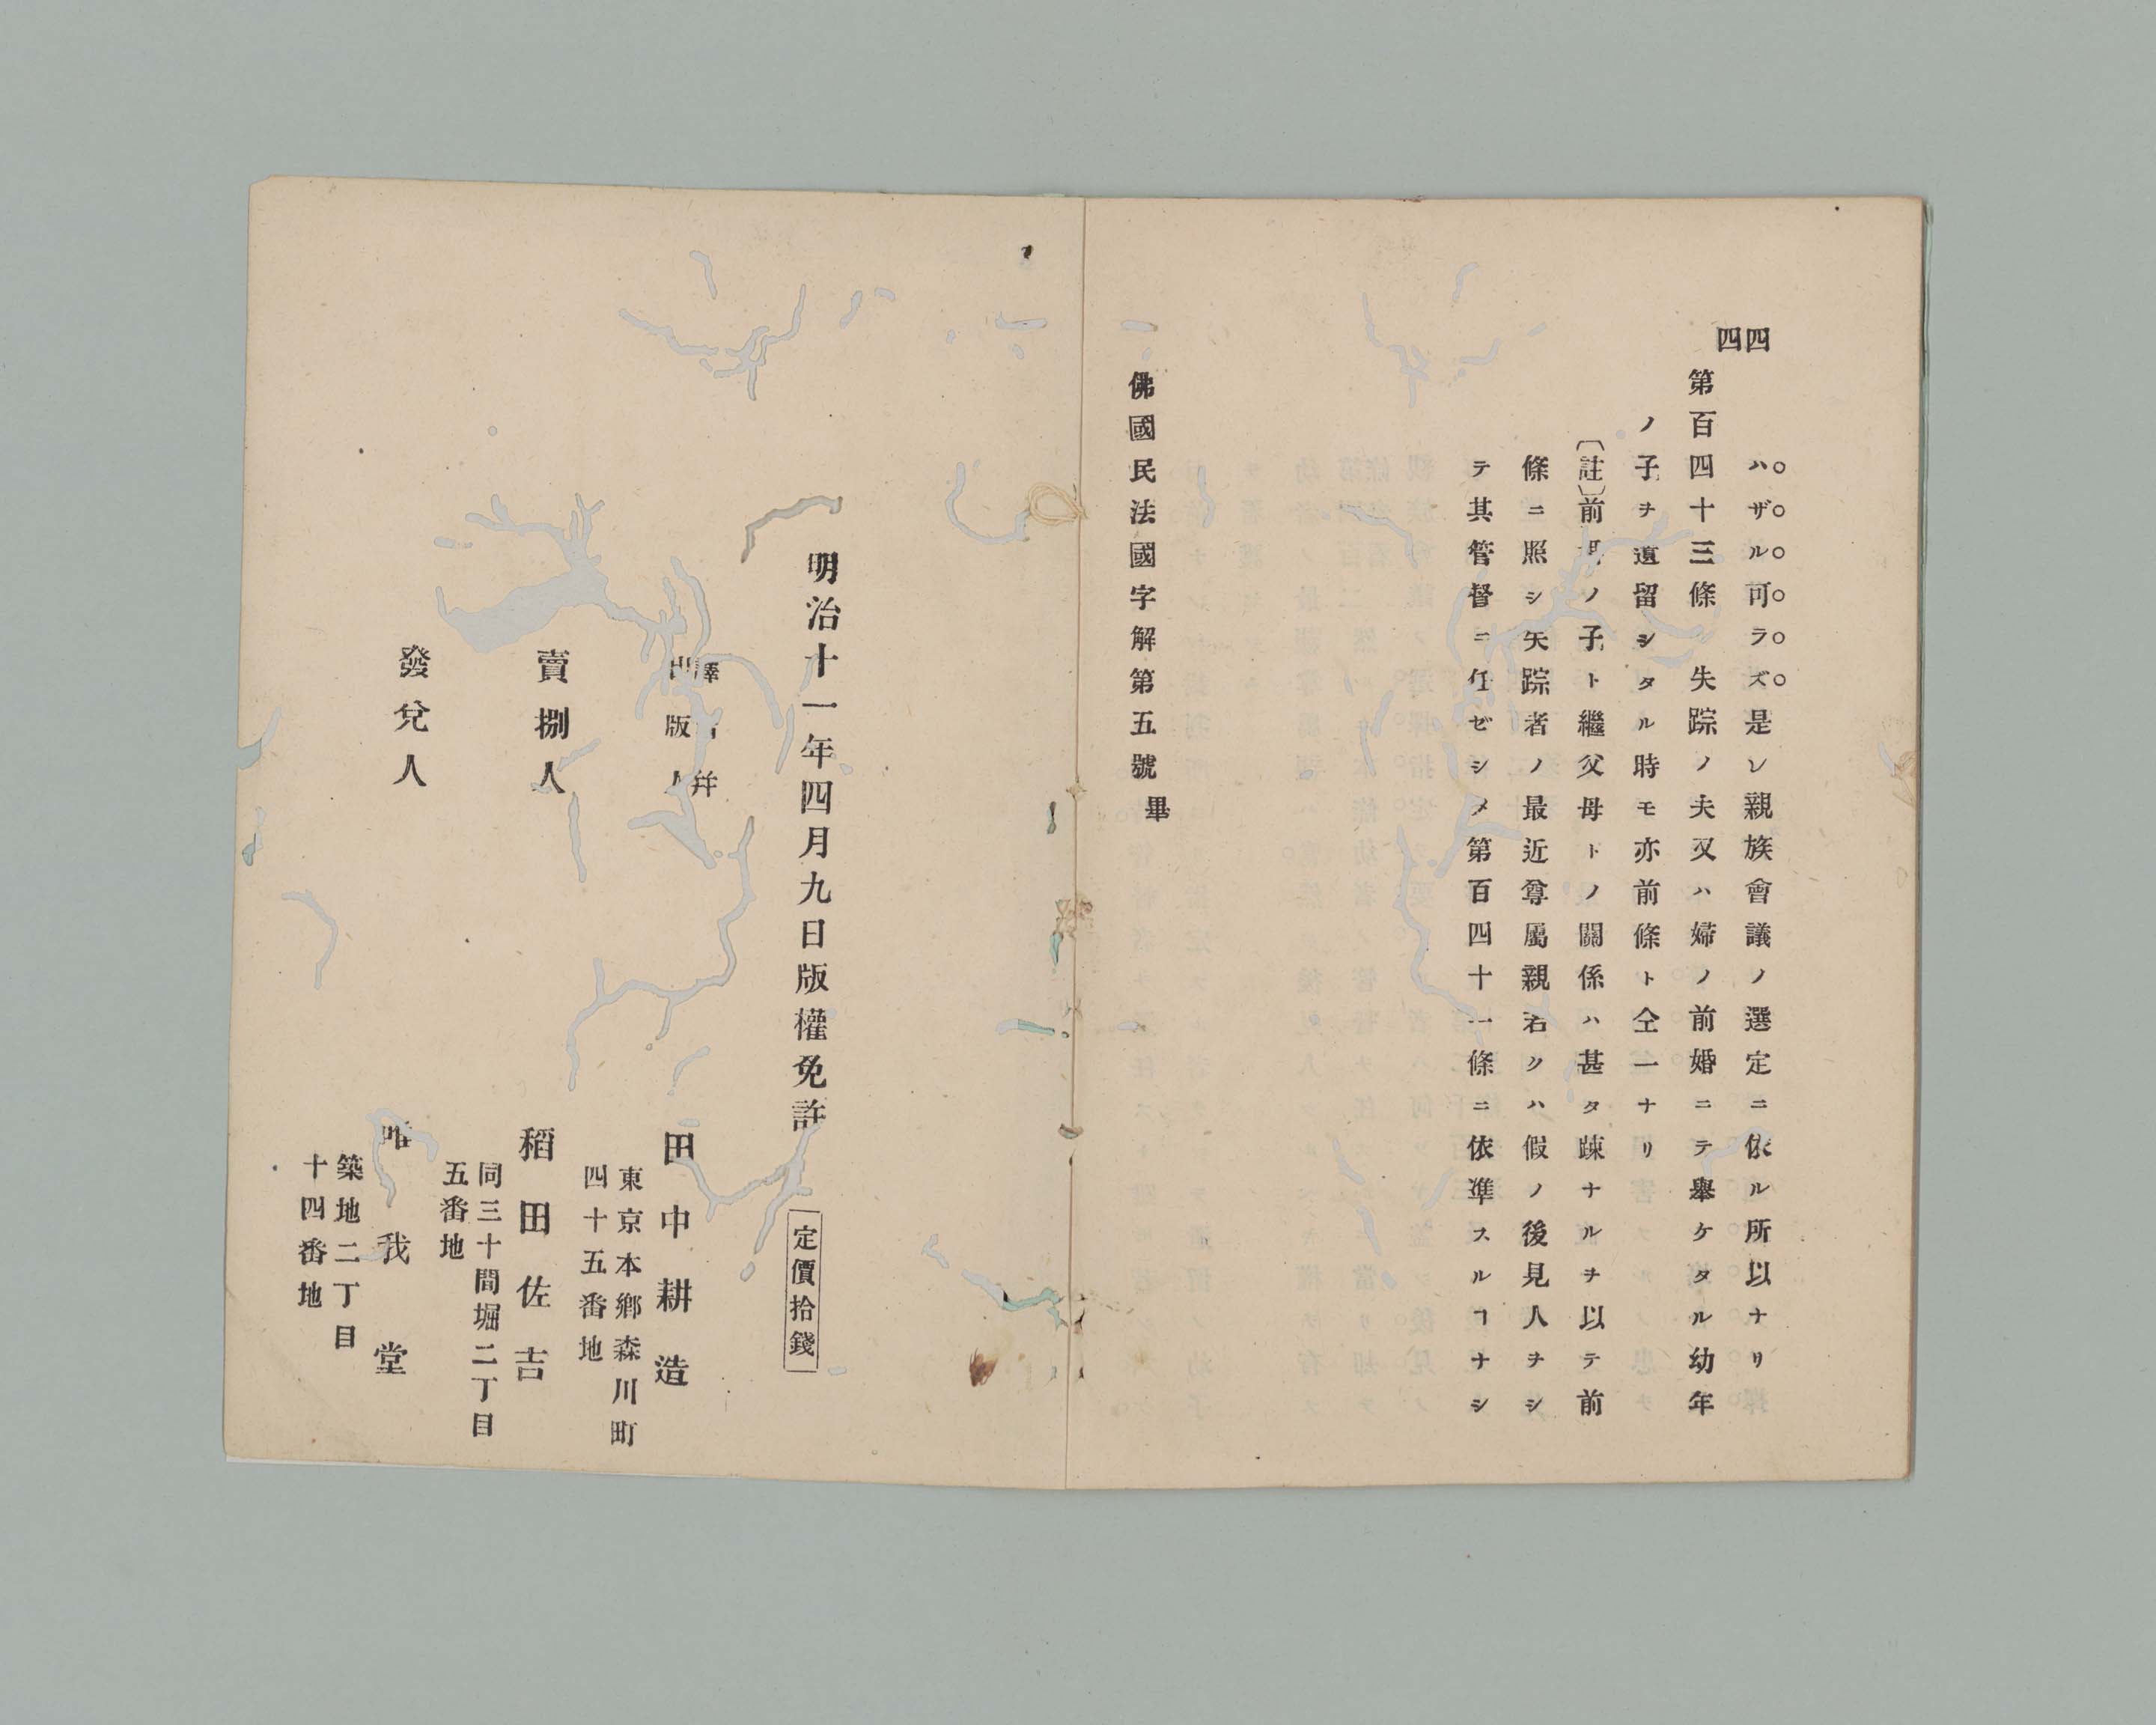 四四
ハザル可ラズ是レ親族會議ノ選定ニ依ル所以ナリ
第百四十三條　失踪ノ夫又ハ婦ノ前婚ニテ舉ケタル幼年
ノ子ヲ遺留シタル時モ亦前條ト仝一ナリ
〔註〕前ノ子ト繼父母トノ關係ハ甚タ疎ナルヲ以テ前
條ニ照シ失踪者ノ最近尊屬親若クハ假ノ後見人ヲシ
テ其管督ニ任ゼシメ第百四十一條ニ依準スルヿナシ
佛國民法國字解第五號畢
明治十一年四月九日版權免許
定價拾錢
譯幷
出版人
田中耕造
東京本鄉森川町
四十五番地
賣捌人
稻田佐吉
同三十間堀二丁目
五番地
發兌人
唯我堂
築地二丁目
十四番地